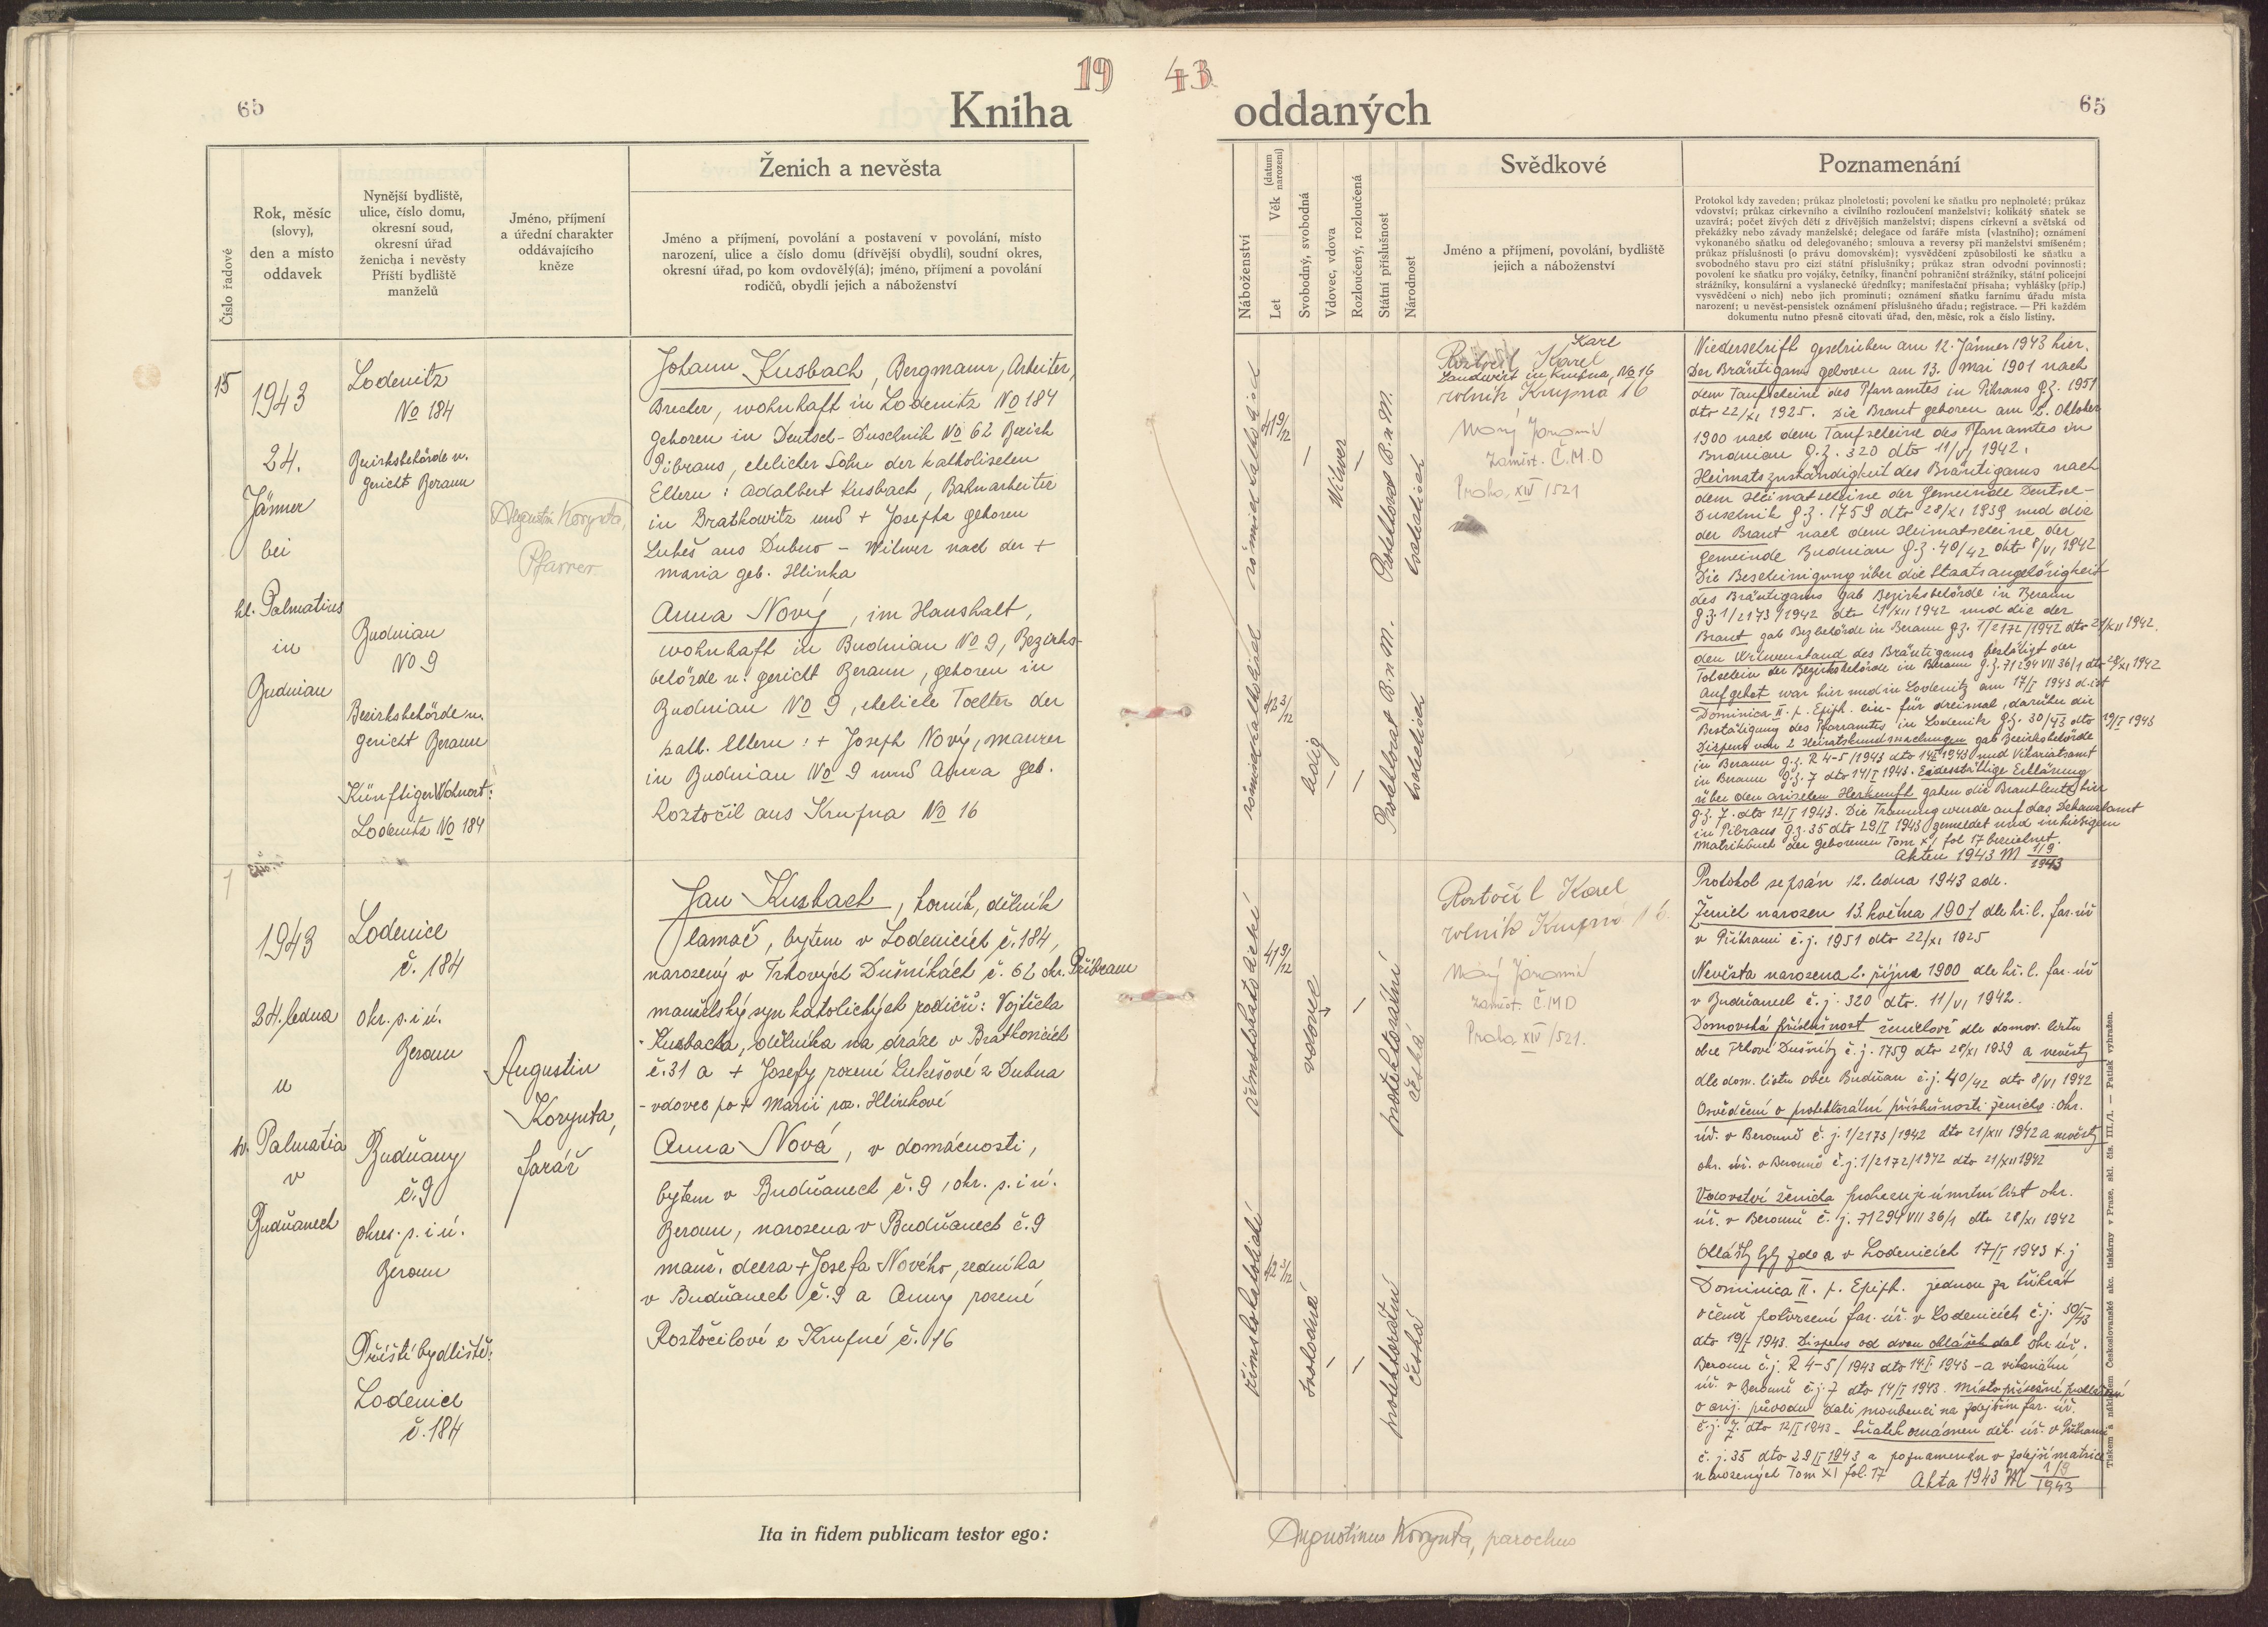 19 43
65
Kniha oddaných
65
Číslo řadové
Rok, měsíc
(slovy),
den a místo
oddavek
Nynější bydliště,
ulice, číslo domu,
okresní soud,
okresní úřad
ženicha i nevěsty
Příští bydliště
manželů
Jméno, příjmení
a úřední charakter
oddávajícího
kněze
Ženich a nevěsta
Jméno a příjmení, povolání a postavení v povolání, místo
narození, ulice a číslo domu (dřívější obydlí), soudní okres,
okresní úřad, po kom ovdověly(á); jméno, příjmení a povolání
rodičů, obydlí jejich a náboženství
Náboženství
Let
Věk (datum narození)
Svobodný, svobodná
Vdovec, vdova
Rozloučený, rozloučená
Státní příslušnost
Národnost
Svědkové
Jméno a příjmení, povolání, bydliště
jejich a náboženství
Poznamenání
Protokol kdy zaveden; průkaz plnoletosti; povolení ke sňatku pro neplnoleté; průkaz
vdovství; průkaz církevního a civilního rozloučení manželství; kolikátý sňatek se
uzavírá; počet živých dětí z dřívějších manželství; dispens církevní a světská od
překážky nebo závady manželské; delegace od faráře místa (vlastního); oznámení
vykonaného sňatku od delegovaného; smlouva a reversy při manželství smíšeném;
průkaz příslušnosti (o právu domovském); vysvědčení způsobilosti ke sňatku a
svobodného stavu pro cizí státní příslušníky; průkaz stran odvodní povinnosti;
povolení ke sňatku pro vojáky, četníky, finanční pohraniční strážníky, státní policejní
strážníky, konsulární a vyslanecké úředníky; manifestační přísaha; vyhlášky (příp.)
vysvědčení o nich) nebo jich prominutí; oznámení sňatku farnímu úřadu místa
narození; u nevěst-pensistek oznámení příslušného úřadu; registrace. — Při každém
dokumentu nutno přesně citovati úřad, den, měsíc, rok a číslo listiny.
15
1943
24.
Jänner
bei
hl. Palmatius
in
Budnian
Lodenitz
No 184
Bezirksbehörde u.
gericht Beraun
Budnian
No 9
Bezirksbehörde u.
gericht Beraun
Künftiger Wohnort:
Lodenitz No 184
Augustin Korynta,
Pfarrer
Johann Kusbach, Bergmann, Arbeiter,
Brecher, wohnhaft in Lodenitz No 184
geboren in Deutsch-Duschnik No 62 Bezirk
Pibrans, ehelicher Sohn der katholischen
Eltern: Adalbert Kusbach, Bahnarbeiter
in Bratkowitz und + Josepha geboren
Lukeš aus Dubno - Witwer nach der +
Maria geb. Hlinka
Anna Nový, im Haushalt,
wohnhaft in Budnian No 9, Bezirks-
behörde u. gericht Beraun, geboren in
Budnian No 9, eheliche Tochter der
kath. Eltern: + Joseph Nový, Maurer
in Budnian No 9 und Anna geb.
Roztočil aus Krupna No 16
römischkatholisch
41 9/12
Witwer
Protektorat B. u M.
tschechisch
römischkatholisch
42 3/12
ledig
Protektorat B. u M.
tschechisch
Karl
Roztočil Karel
Landwirt in Krupna, No 16
rolník Krupná 16
Nový Jaromír
zaměst. Č.M.D
Praha, XIV/521
Niederschrift geschrieben am 12. Jänner 1943 hier.
Der Bräutigam geboren am 13. Mai 1901 nach
dem Taufscheine des Pfarramtes in Pibrans G.Z. 1951
dto 22/XI 1925. Die Braut geboren am 2. Oktober
1900 nach dem Taufscheine des Pfarramtes in
Budnian G.Z. 320 dto 11/VI 1942.
Heimatszuständigkeit des Bräutigams nach
dem Heimatscheine der Gemeinde Deutsch-
Duschnik G.Z. 1759 dto 28/XI 1939 und die
der Braut nach dem Heimatscheine der
Gemeinde Budnian G.Z. 40/42 dto 8/VI 1942
Die Bescheinigung über die Staatsangehörigkeit
des Bräutigams gab Bezirksbehörde in Beraun
G.Z. 1/2173/1942 dto 21/XII 1942 und die der
Braut gab Bezbehörde in Beraun G.Z. 1/2172/1942 dto 21/XII 1942.
den Witwenstand des Bräutigams bestätigt der
Totschein der Bezirksbehörde in Beraun G.Z. 71294 VII 36/1 dto 28/XI 1942
Aufgebot war hier und in Lodenitz am 17/I 1943 d. ist
Dominica II. p. Epiph. ein- für dreimal, darüber die
Bestätigung des Pfarramtes in Lodenitz G.Z. 30/43 dto 19/I 1943
Dispens von 2 Heiratskundmachungen gab Bezirksbehörde
in Beraun G.Z. R 4-5/1943 dto 14/I 1943 und Vikariatsamt
in Beraun G.Z. 7 dto 14/I 1943. Eidesstättige Erklärung
über den arischen Herkunft gaben die Brautleute hier
G.Z. 7. dto 12/I 1943. Die Trauung wurde auf das Dekanatsamt
in Pibrans G.Z. 35 dto 29/I 1943 gemeldet und in hiesigem
Matrikbuch der geborenen Tom XI fol 17 bezeichnet.
Akten 1943 M 1/9 1943
1943
24. ledna
u
sv. Palmatia
v
Budňanech
Lodenice
č. 184
okr. s. i ú.
Beroun
Budňany
č. 9
okres. s. i ú.
Beroun
Příští bydliště:
Lodenice
č. 184
Augustin
Korynta,
farář
Jan Kusbach, horník, dělník
lamač, bytem v Lodenicích č. 184,
narozený v Trhových Dušníkách č. 62 okr. Příbram
manželský syn katolických rodičů: Vojtěcha
Kusbacha, dělníka na dráze v Bratkovicích
č. 31 a + Josefy rozené Lukešové z Dubna
- vdovec po + Marii roz. Hlinkové
Anna Nová, v domácnosti,
bytem v Budňanech č. 9, okr. s. i ú.
Beroun, narozena v Budňanech č. 9
manž. dcera + Josefa Nového, zedníka
v Budňanech č. 9 a Anny rozené
Roztočilové z Krupné č. 16
římskokatolické
41 9/12
vdovec
protektorátní
česká
římskokatolické
42 3/12
svobodná
protektorátní
česká
Roztočil Karel
rolník Krupná 16.
Nový Jaromír
zaměst. Č.M.D
Praha XIV/521.
Protokol sepsán 12. ledna 1943 zde.
Ženich narozen 13. května 1901 dle kř. l. far. úř
v Příbrami č. j. 1951 dto 22/XI 1925
Nevěsta narozena 2. října 1900 dle kř. l. far. úř
v Budňanech č. j. 320 dto. 11/VI 1942.
Domovská příslušnost ženichova dle domov. listu
obce Trhové Dušníky č. j. 1759 dto 28/XI 1939 a nevěsty
dle dom. listu obce Budňan č. j. 40/42 dto 8/VI 1942
Osvědčení o protektorátní příslušnosti ženicha: okr.
úř. v Berouně č. j. 1/2173/1942 dto 21/XII 1942 a nevěsty
okr. úř. v Berouně č. j. 1/2172/1942 dto 21/XII 1942
Vdovství ženicha prokazuje úmrtní list okr.
úř. v Berouně č. j. 71294 VII 36/1 dto 28/XI 1942
Ohlášky byly zde a v Lodenicích 17/I 1943 t. j
Dominica II. p. Epiph. jednou za třikrát
o čemž potvrzení far. úř. v Lodenicích č. j. 30/43
dto 19/I 1943. Dispens od dvou ohlášek dal okr. úř.
Beroun č. j. R 4-5/1943 dto 14/I 1943 - a vikariátní
úř. v Berouně č. j. 7 dto 14/I 1943. Místopřísežné prohlášení
o arij. původu dali snoubenci na zdejším far. úř.
č. j. 7. dto 12/I 1943 - Sňatek oznámen děk. úř. v Příbrami
č. j. 35 dto 29/I 1943 a poznamenán v zdejší matrice
narozených Tom XI fol. 17 Akta 1943 M 1/9 1943
Ita in fidem publicam testor ego:
Augustinus Korynta, parochus
Tiskem a nákladem Českoslovanské akc. tiskárny v Praze, skl. čís. III./1. — Patisk vyhražen.